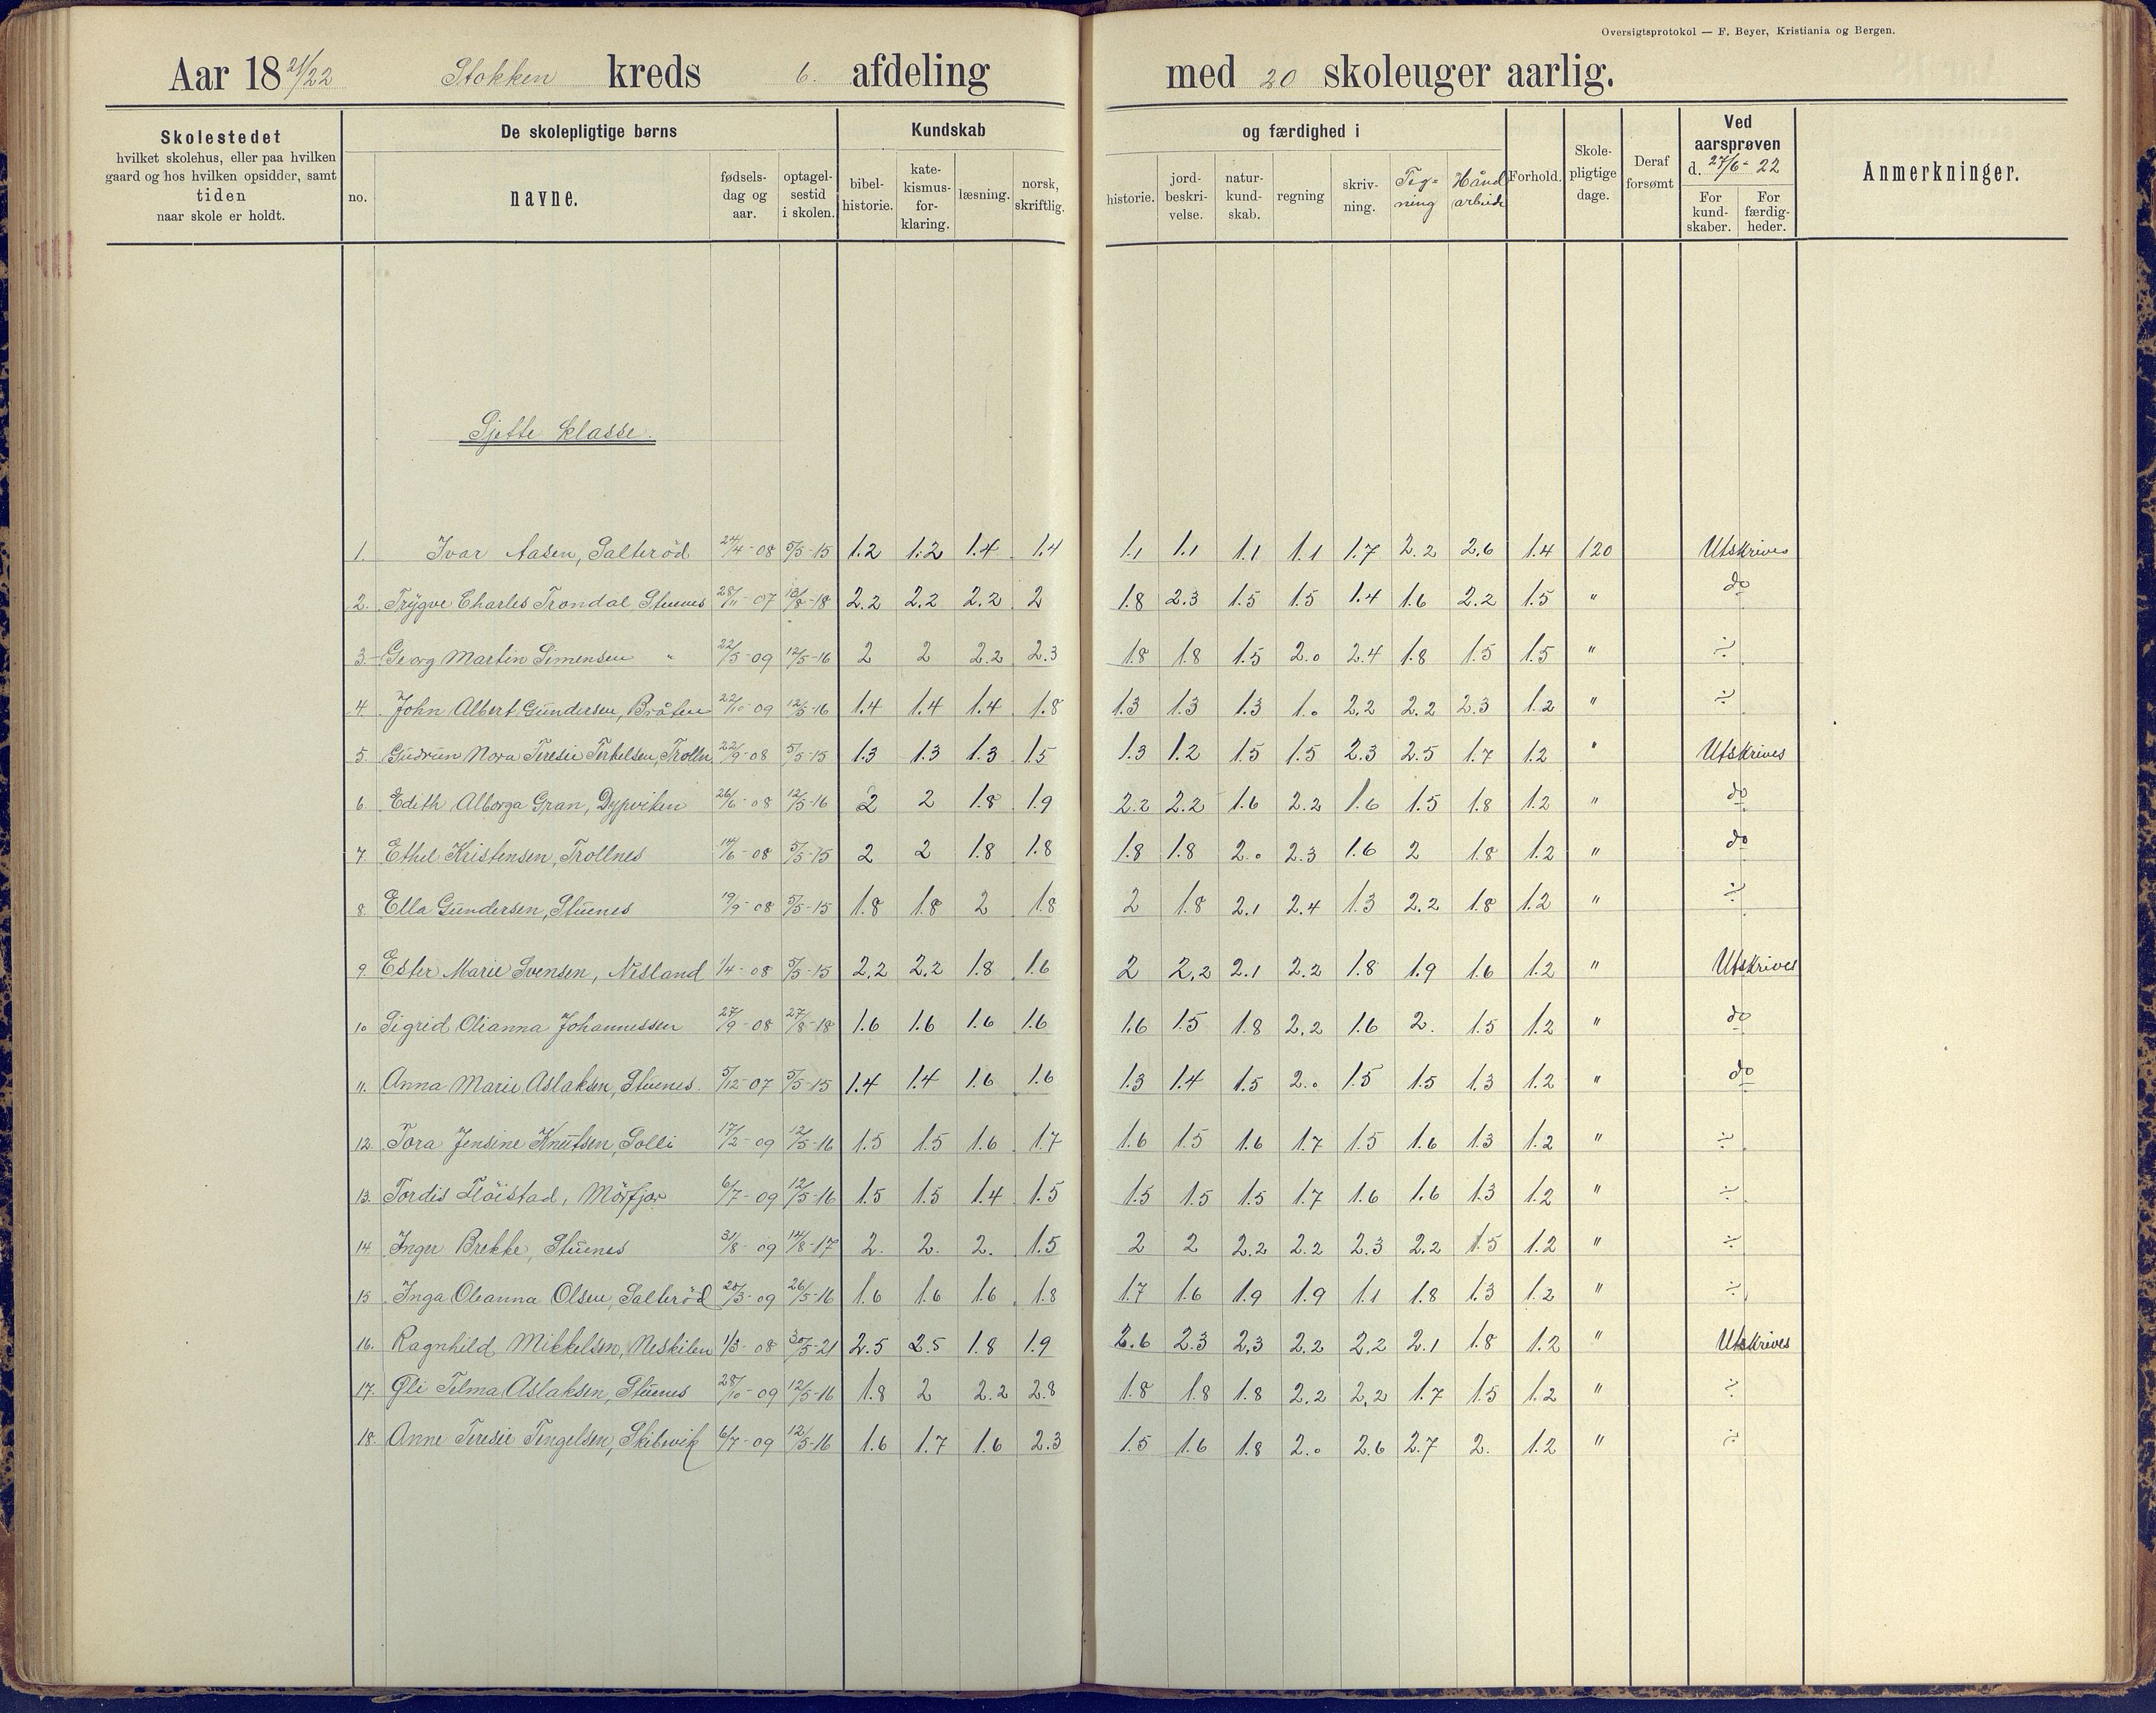 Oversigtsprotokol — F. Beyer, Kristiania og Bergen.
Aar 18 21/22 Stokken kreds 6. afdeling med 20 skoleuger aarlig.
Skolestedet
hvilket skolehus, eller paa hvilken
gaard og hos hvilken opsidder, samt
tiden
naar skole er holdt.
De skolepligtige børns
no.
navne.
fødsels-
dag og
aar.
optagel-
sestid
i skolen.
Kundskab
bibel-
historie.
kate-
kismus-
for-
klaring.
læsning.
norsk,
skriftlig.
og færdighed i
historie.
jord-
beskri-
velse.
natur-
kund-
skab.
regning
skriv-
ning.
Teg-
ning
Hånd
arbeide
Forhold.
Skole-
pligtige
dage.
Deraf
forsømt
Ved
aarsprøven
d. 27/6 - 22
For
kund-
skaber.
For
færdig-
heder.
Anmerkninger.
Sjette klasse.
1. Ivar Aasen, Salterød 24/4-08 5/5-15 1.2 1.2 1.4 1.4 1.1 1.1 1.1 1.1 1.7 2.2 2.6 1.4 120 Utskrives
2. Trygve Charles Trondal, Stuenes 28/11-07 13/8-18 2.2 2.2 2.2 2 1.8 2.3 1.5 1.5 1.4 1.6 2.2 1.5 " do
3. Georg Martin Simensen " 22/5-09 12/5-16 2 2 2.2 2.3 1.8 1.8 1.5 2.0 2.4 1.8 1.5 1.5 " ÷
4. John Albert Gundersen, Bråten 22/10-09 12/5-16 1.4 1.4 1.4 1.8 1.3 1.3 1.3 1.0 2.2 2.2 2.3 1.2 " ÷
5. Gudrun Nora Teresie Terkelsen, Trolln 22/9-08 5/5-15 1.3 1.3 1.3 1.5 1.3 1.2 1.5 1.5 2.3 2.5 1.7 1.2 " Utskrives
6. Edith Alborga Gran, Dypviken 26/6-08 12/5-16 2 2 1.8 1.9 2.2 2.2 1.6 2.2 1.6 1.5 1.8 1.2 " do
7. Ethel Kristensen, Trollnes 14/6-08 5/5-15 2 2 1.8 1.8 1.8 1.8 2.0 2.3 1.6 2 1.8 1.2 " do
8. Ella Gundersen, Stuenes 19/9-08 5/5-15 1.8 1.8 2 1.8 2 1.8 2.1 2.4 1.3 2.2 1.8 1.2 " ÷
9. Ester Marie Svensen, Nesland 1/4-08 5/5-15 2.2 2.2 1.8 1.6 2 2.2 2.1 2.2 1.8 1.9 1.6 1.2 " Utskrives
10 Sigrid Olianna Johannessen 27/9-08 27/8-18 1.6 1.6 1.6 1.6 1.6 1.5 1.8 2.2 1.6 2. 1.5 1.2 " do
11. Anna Marie Aslaksen, Stuenes. 5/12-07 5/5-15 1.4 1.4 1.6 1.6 1.3 1.4 1.5 2.0 1.5 1.5 1.3 1.2 " do
12. Tora Jensine Knutsen, Solli 17/2-09 12/5-16 1.5 1.5 1.6 1.7 1.6 1.5 1.6 1.7 1.5 1.6 1.3 1.2 " ÷
13. Tordis Fløistad, Mørfjær 6/7-09 12/5-16 1.5 1.5 1.4 1.5 1.5 1.5 1.5 1.7 1.6 1.6 1.3 1.2 " ÷
14 Inger Brekke, Stuenes 31/8-09 14/8-17 2. 2. 2. 1.5 2 2 2.2 2.2 2.3 2.2 1.5 1.2 " ÷
15 Inga Oleanna Olsen, Salterød 20/3-09 26/5-16 1.6 1.6 1.6 1.8 1.7 1.6 1.9 1.9 1.1 1.8 1.3 1.2 " ÷
16. Ragnhild Mikkelsen, Neskilen 1/3-08 30/5-21 2.5 2.5 1.8 1.9 2.6 2.3 2.3 2.2 2.2 2.1 1.8 1.2 " Utskrives
17. Oli Telma Aslaksen, Stuenes 28/10-09 12/5-16 1.8 2 2.2 2.8 1.8 1.8 1.8 2.2 2.2 1.7 1.5 1.2 " ÷
18. Anne Teresie Tengelsen, Skibevik 6/7-09 12/5-16 1.6 1.7 1.6 2.3 1.5 1.6 1.8 2.0 2.6 2.7 2. 1.2 " ÷